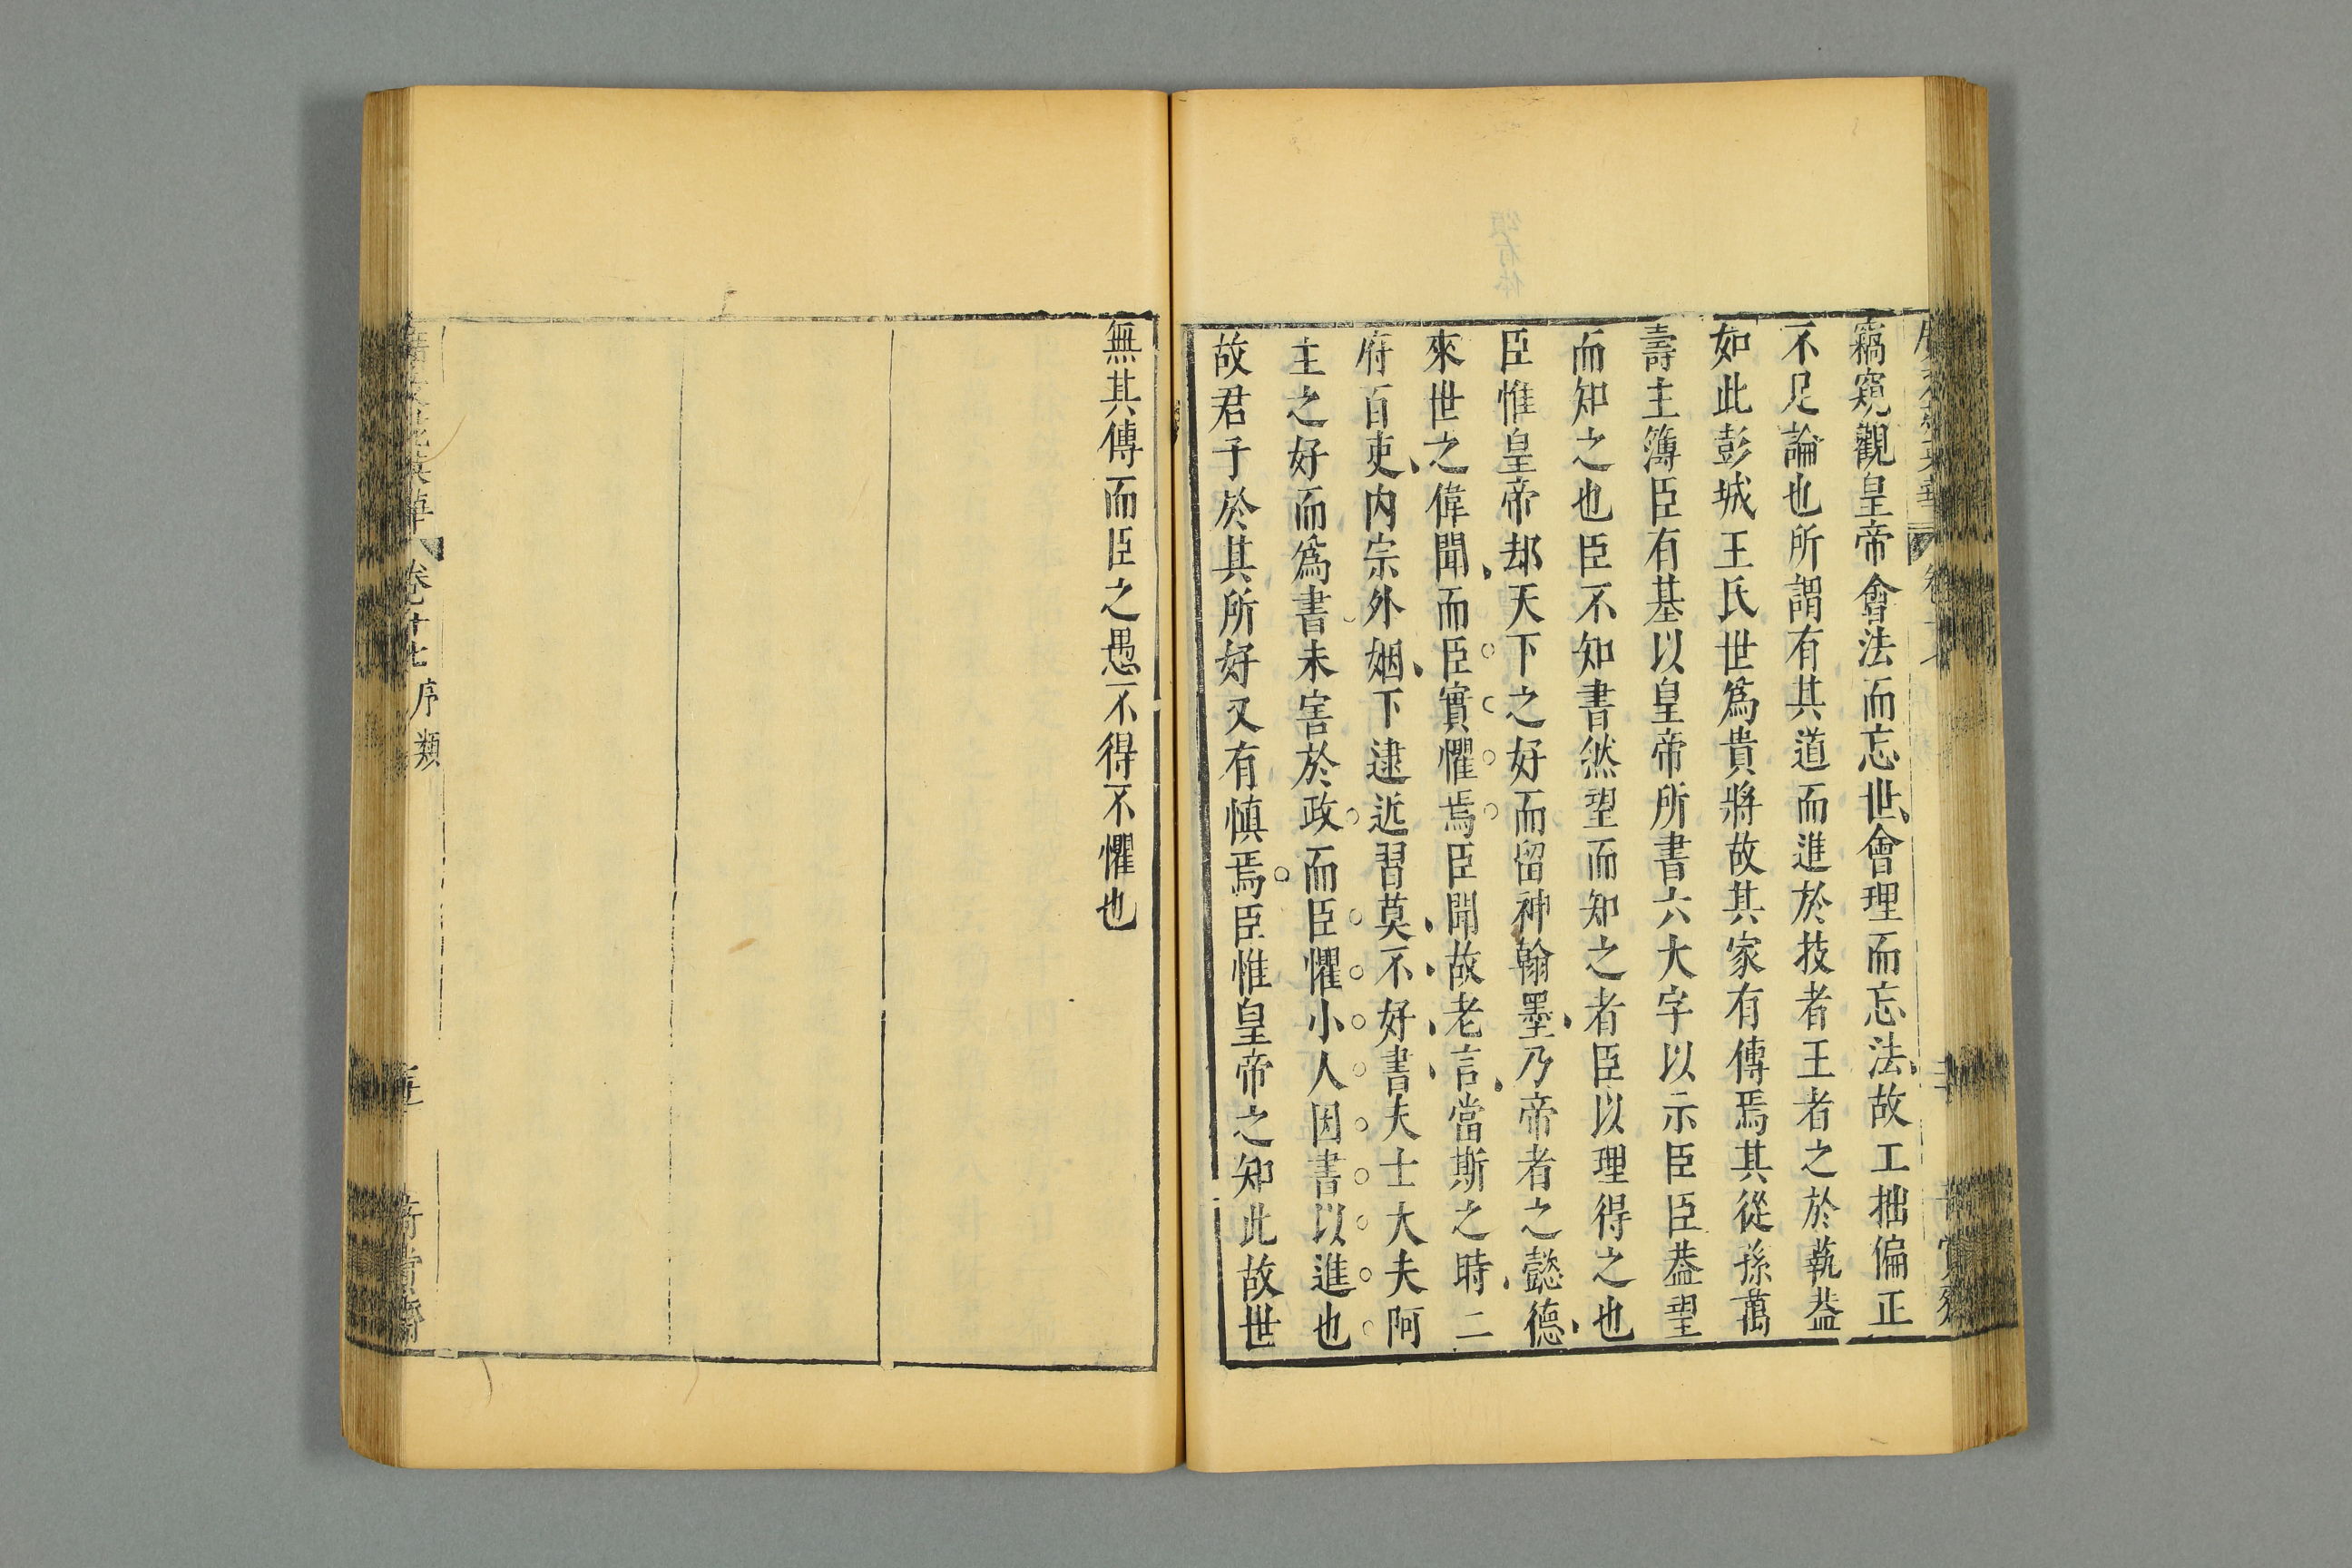 竊窺觀皇帝會法而忘世會理而忘法故工拙偏正
不足論也所謂有其道而進於技者王者之於執葢
如此彭城王氏世爲貴將故其家有傳焉其從孫萬
壽主簿臣有基以皇帝所書六大字以示臣臣葢望
而知之也臣不知書然望而知之者臣以理得之也
臣惟皇帝却天下之好而留神翰墨乃帝者之懿德
來世之偉聞而臣實懼焉臣聞故老言當斯之時二
府百吏内宗外姻下逮近習莫不好書夫士大夫阿
主之好而爲書未害於政而臣懼小人因書以進也
故君子於其所好又有慎焉臣惟皇帝之知此故世
無其傳而臣之愚不得不懼也
卷十七 序類